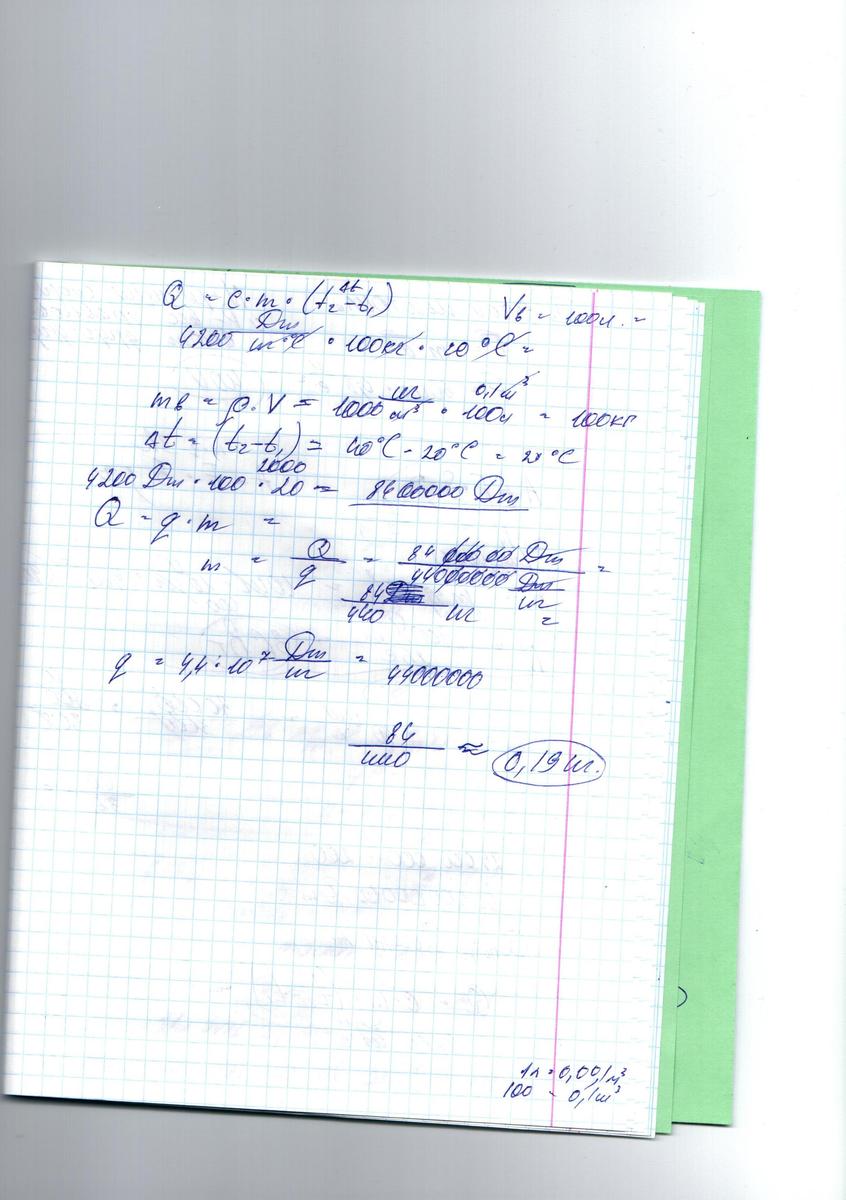 Q = c·m·(t₂-t₁) Δt
V₆ = 100л. =
4200 Дж/кг°C · 100кг · 20°C =
mв = ρ·V = 1000 кг/м³ · 100л 0,1м³ = 100кг
Δt = (t₂-t₁) = 40°C - 20°C = 20°C
2000
4200 Дж · 100 · 20 = 8400000 Дж
Q = q·m =
m = Q/q = 8400000 Дж / 44000000 Дж/кг =
84/440 кг =
q = 4,4·10⁷ Дж/кг = 44000000
84/440 ≈ 0,19кг.
1л = 0,001м³
100 - 0,1м³